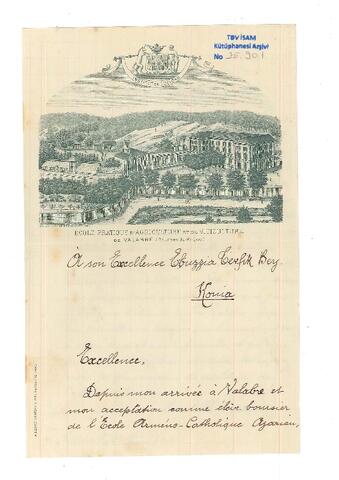 TDV İSAM
Kütüphanesi Arşivi
No
ECOLE PRATIQUE D'AGRICULTURE
DE VALABRE
À son Excellence Ebuzzia Tevfik Bey.
Konia
Excellence,
Depuis mon arrivée à Valabre et
mon acceptation comme élève boursier
de l'Ecole Arméno-Catholique Azarian,